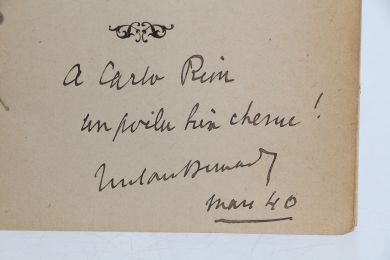 A Carlo Rim
un poilu bien chenu !
Tristan Bernard
mars 40